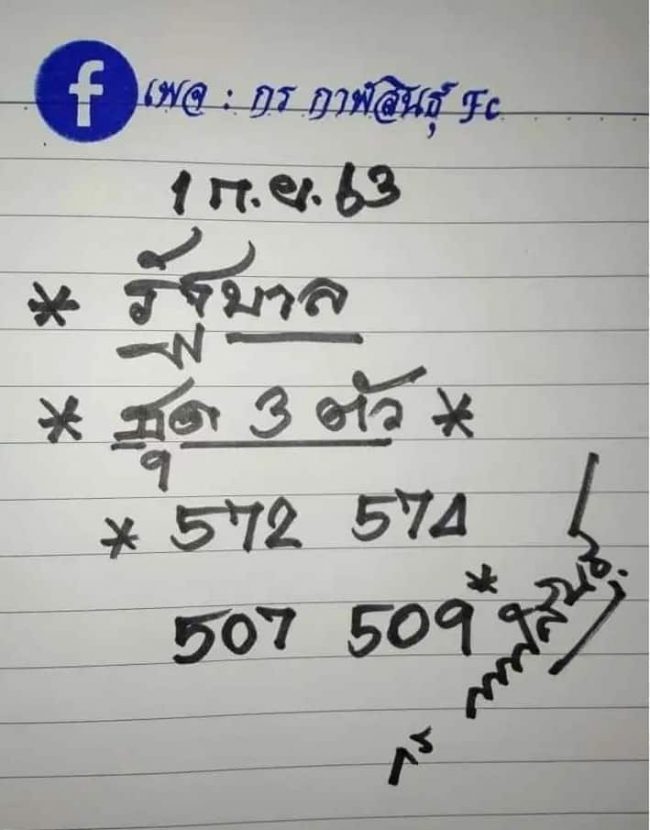 f เพจ : กร กาฬสินธุ์ Fc
1 ก.ย. 63
* รัฐบาล
* ชุด 3 ตัว *
* 572 574
507 509*
กร กาฬสินธุ์